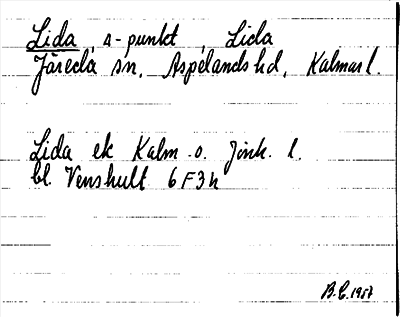 Lida, s-punkt, Lida
Järeda sn, Aspelands hd, Kalmar l.
Lida ek Kalm. o. Jönk. l.
bl. Venshult 6F3h
B.E. 1957